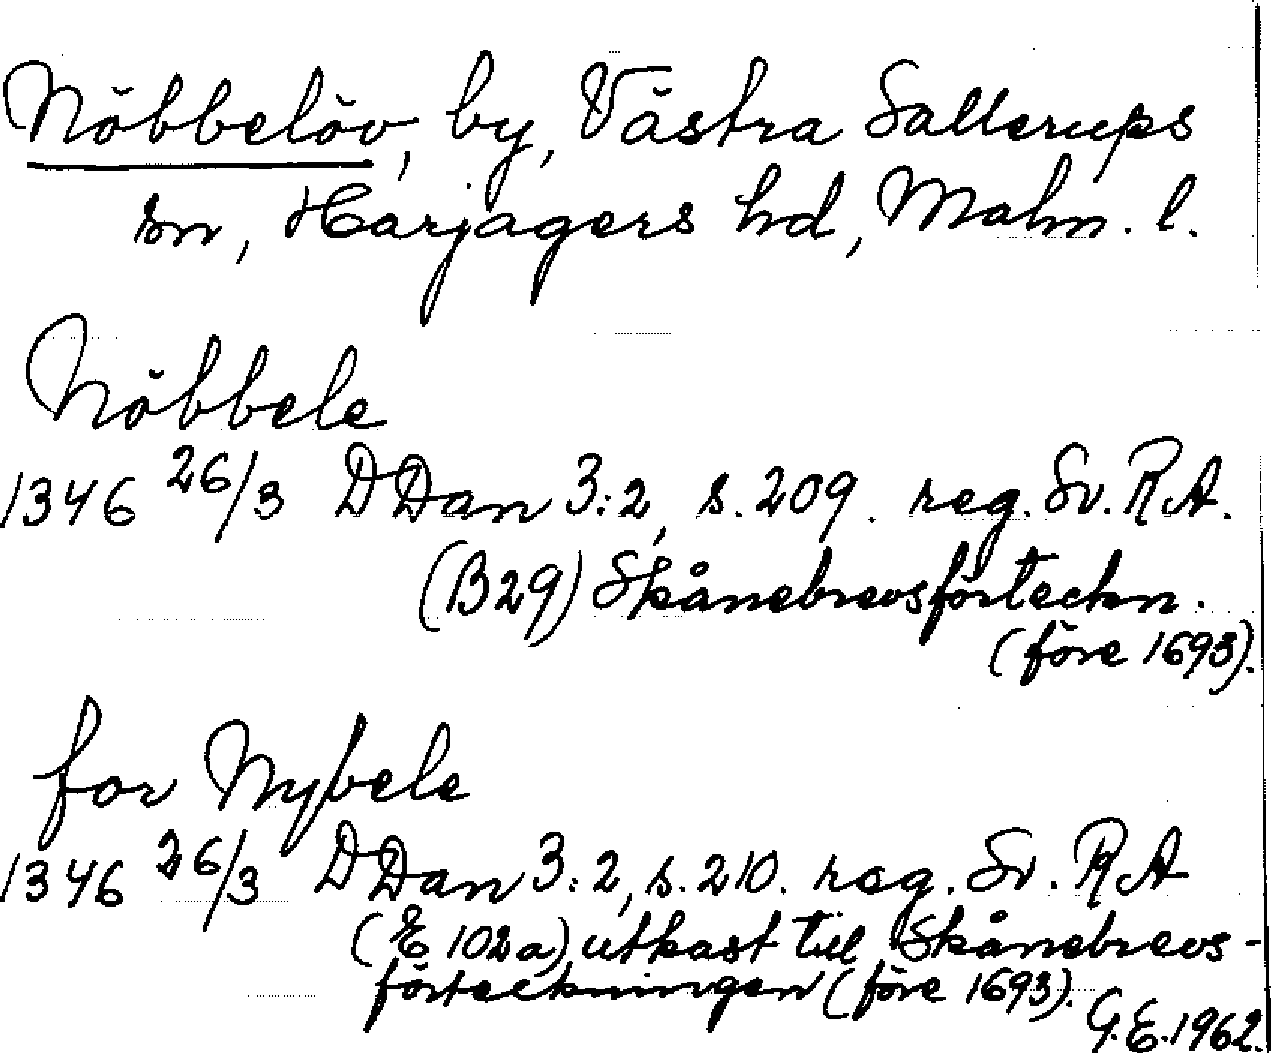 Nöbbelöv, by, Västra Sallerups
sn, Harjagers hd, Malm. l.
Nöbbele
1346 26/3 DDan 3:2, s. 209. reg. Sv. RA.
(B29) Skånebrevsförteckn.
(före 1693).
for Nybele
1346 26/3 DDan 3:2, s. 210. reg. Sv. RA
(E 102a) utkast till Skånebrevs-
förteckningen (före 1693).
G.E. 1962.